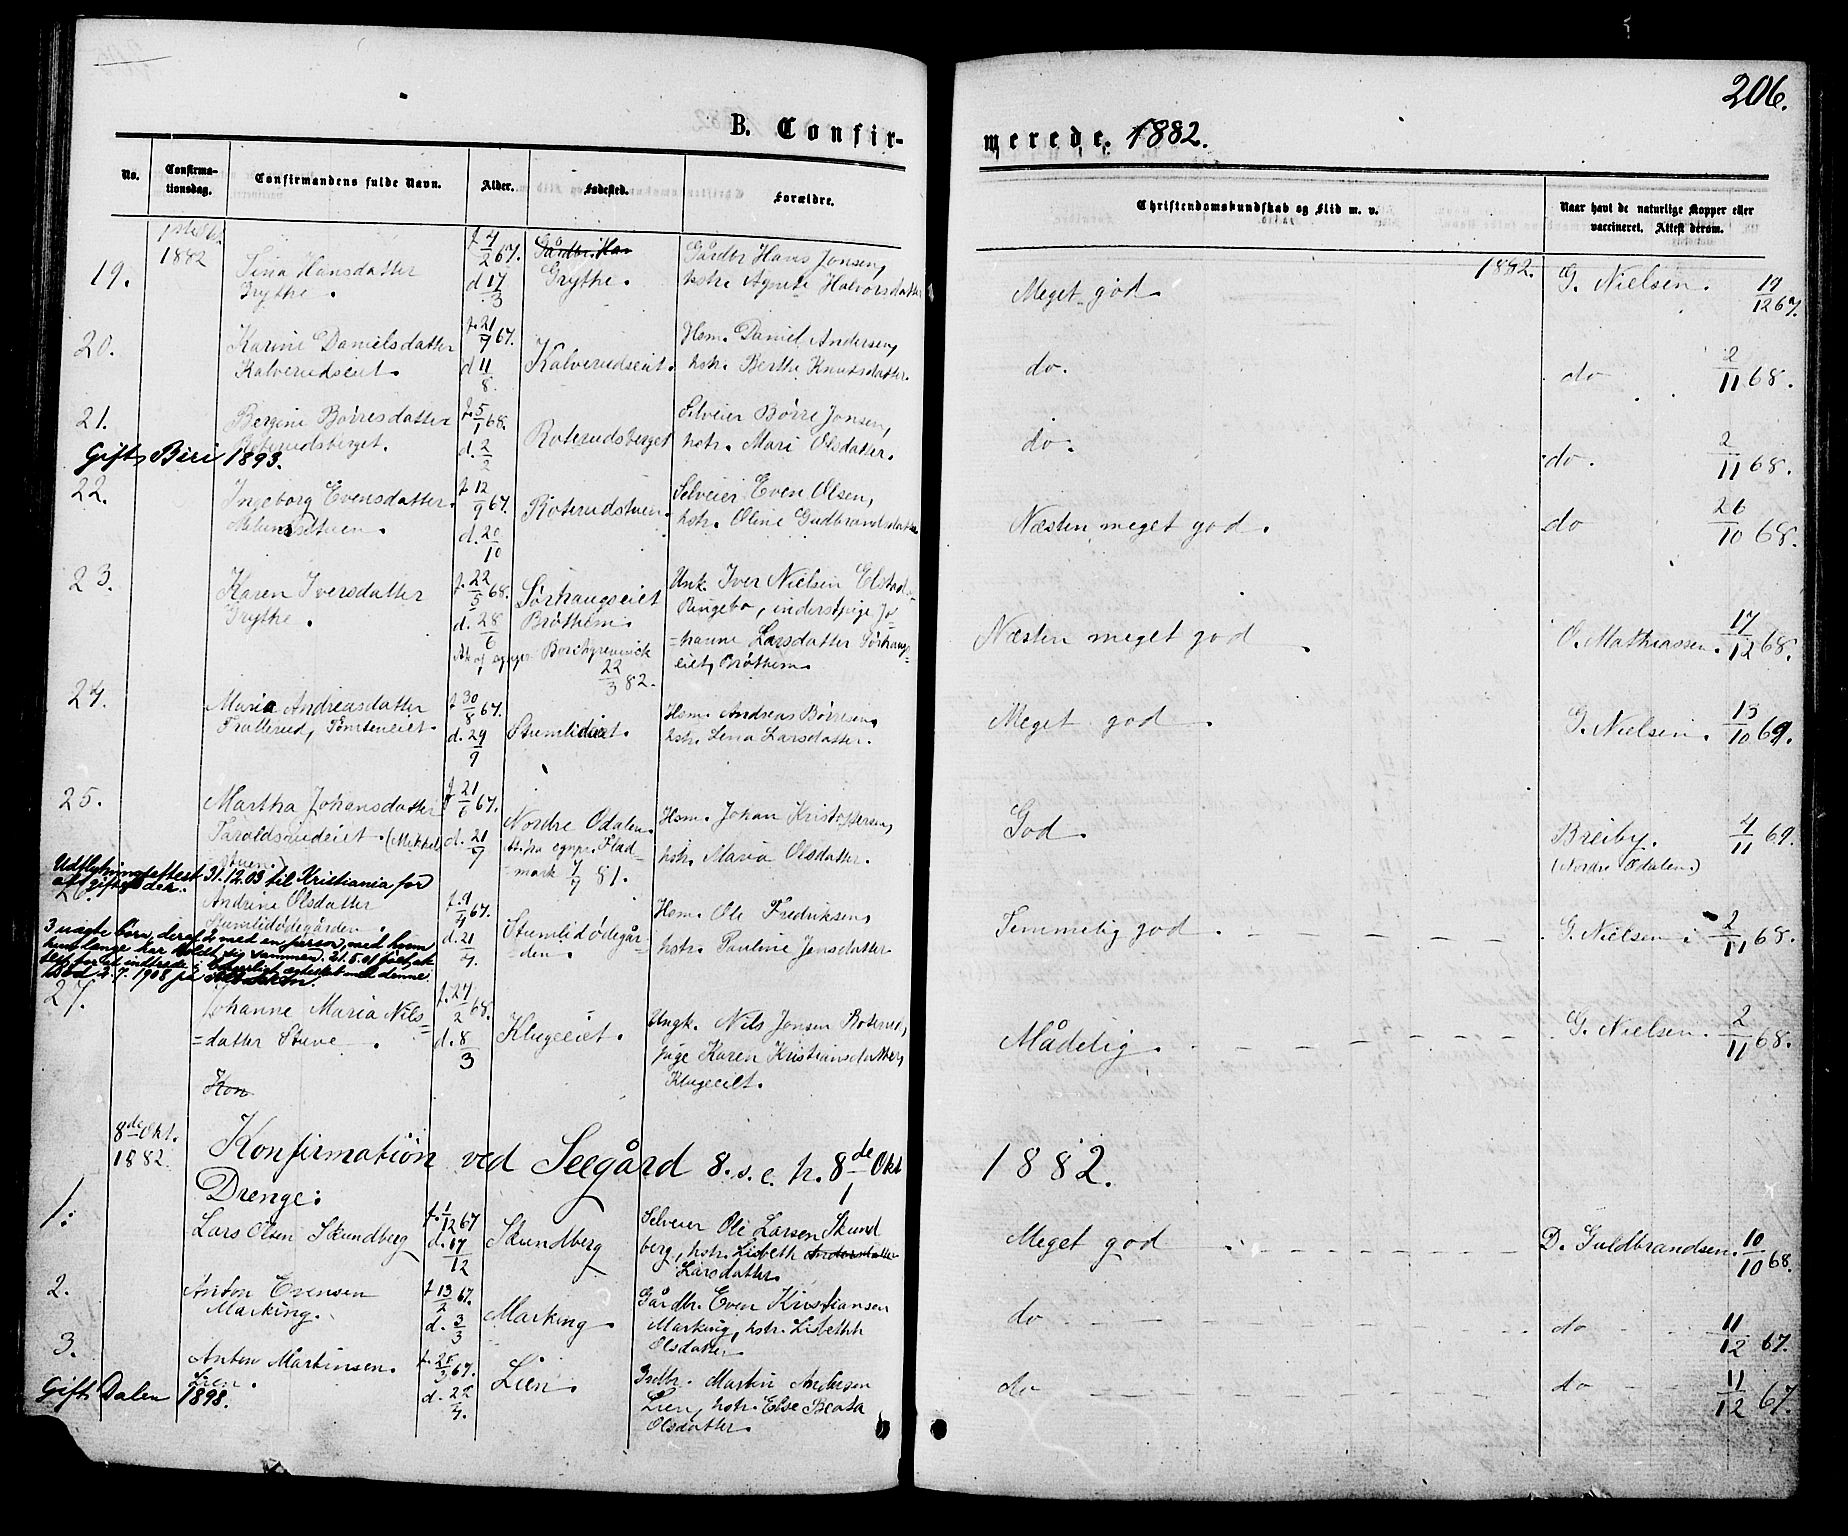 206.
B. Confir-
merede. 1882.
No.
Confirma-
tionsdag.
Confirmandens fulde Navn.
Alder.
Fødested.
Forældre.
Christendomskundskab og Flid m. v.
Naar havt de naturlige Kopper eller
vaccineret. Attest derom.
1882
19.
Lina Hansdatter
Grythe.
f 4/2 67.
d 17/3
Gårdbr. Han
Grythe.
Gårdbr Hans Jonsen,
hstr. Agnete Halvorsdatter
Meget god
1882.
G. Nielsen. 19/12 67.
20.
Karine Danielsdatter
Kalverudseiet.
f. 21/7 67.
d 11/8.
Kalverudseiet.
Hsm. Daniel Andersen,
hstr. Berthe Knutsdatter.
do.
do 2/11 68.
21.
Bergine Børresdatter
Roterudsberget.
f. 5/1 68.
d. 2/2
Roterudsberget
Selveier Børre Jonsen,
hstr. Mari Olsdatter.
do.
do. 2/11 68.
Gift, Biri 1893.
22.
Ingeborg Evensdatter.
f. 12/9 67.
d. 20/10
Roterudstuen.
Selveier Even Olsen,
hstr. Oline Gudbrandsdatter
Næsten meget god.
do 26/10 68.
23.
Karen Iversdatter
Grythe.
f. 22/5 68.
d. 28/6
Sørhaugseiet
Brøttum.
22/3 82.
Unk. Iver Nielsen Elstad,
Ringebo, inderstpige Jo-
=hanne Larsdatter Sørhaugs=
eiet, Brøttum.
Næsten meget god
O. Mathiassen. 17/12 68.
24.
Maria Andreasdatter
f 30/8 67.
d. 29/9
Stumlideiet.
Hsm. Andreas Børresen,
hstr. Lena Larsdatter.
Meget god
G. Nielsen. 13/10 69.
25.
Martha Johansdatter
Taraldsrudeiet. (Mikkel
stuen.)
f 21/6 67.
d. 21/7
Nordre Odalen.
7/7 81.
Hsm. Johan Kristoffersen,
hstr. Maria Olsdatter.
God
Breiby. 4/11 69.
(Nordre Odalen.)
Udflytningsattest 31.12.03 til Kristiania for
at giftes der.
26.
Andrine Olsdatter
Stumlidødegården
f. 9/4 67.
d. 21/4.
Stumlidødegår-
=den.
Hsm. Ole Fredriksen,
hstr. Pauline Jensdatter
Temmelig god
G. Nielsen 2/11 68.
3 uægte børn, deraf 2 med en person, med hvem
hun længe har holdt sig sammen. 21.5.01
27.
Johanne Maria Nils=
=datter Stuve
f. 24/2 68.
d. 8/3
Klugeeiet.
Ungk. Nils Jonsen Roterud,
pige Karen Kristiansdatter,
Klugeeiet.
Mådelig.
G. Nielsen. 2/11 68.
Kon
8de Okt.
1882.
Konfirmation ved Seegård 8. s. e. p. 8de Okt
1882.
Drenge:
1.
Lars Olsen Skundberg
f. 1/12 67
d. 17/12
Skundberg
Selveier Ole Larsen Skund
berg, hstr. Lisbeth Andersdatter
Larsdatter.
Meget god
D. Guldbrandsen. 10/10 68.
2.
Anton Evensen
Marking.
f 13/2 67.
d. 3/3
Marking
Gårdbr. Even Kristiansen
Marking, hstr. Lisbeth
Olsdatter
do
do 11/12 67.
3.
Anton Martinsen.
Lien.
f. 25/3 67.
d. 22/4.
Lien.
Grdbr. Martin Andersen
Lien, hstr. Else Beata
Olsdatter.
do
do 11/12 67.
Gift, Dalen 1898.